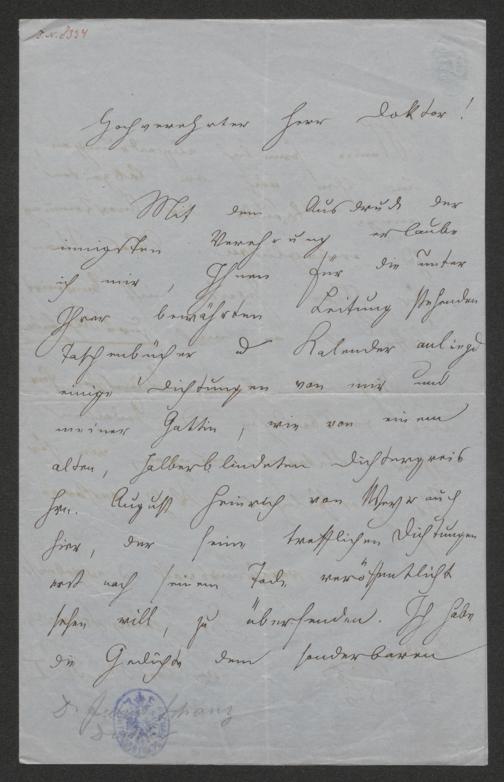 J.N. 8334
Hochverehrter Herr Doktor!
Mit dem Ausdruck der
innigsten Verehrung erlaube
ich mir, Ihnen für die unter
Ihrer bewährten Leitung stehenden
Taschenbücher Kalender anliegd
einige Dichtungen von mir und
meiner Gattin, wie von einem
alten, halberblindeten Dichtergreis
Hrn. August Heinrich von Weyrauch
hier, der seine trefflichen Dichtungen
erst nach seinem Tode veröffentlicht
sehen will, zu übersenden. Ich habe
die Gedichte dem sonderbaren